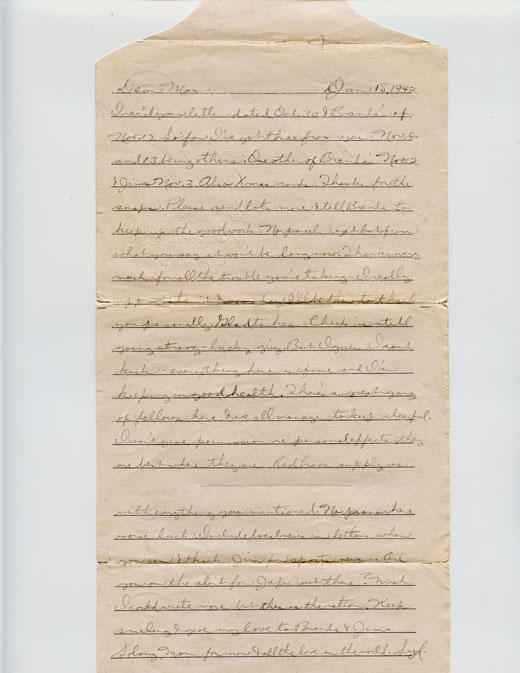 Dear Mom Jan 18, 1943
I rec'd your letter dated Oct. 30 & Brenda's of
Nov. 17. So far I've got three from you. Nov. 6
and 13 being others. One other of Brenda's Nov. 2
& Jim's Nov. 3. Also Xmas cards. Thanks for the
snaps. Please send lots more & tell Brenda to
keep up the good work. No parcels yet but from
what you say it won't be long now. Thanks very
much for all the trouble you're taking. I really
appreciate it & some day I'll be there to thank
you personally. Glad to hear Chuck is still
going strong - lucky guy. But I guess I can't
kick - everything here is fine and I'm
keeping in good health. There's a great gang
of fellows here & we all manage to keep cheerful.
I won't give permission re personal effects, they
are best where they are. Red Cross supply us
with everything you mentioned. No here
worse luck. Include local news in letters when
you can & thank Jim for sports news. Are
you on the alert for Japs out there? Wish
I could write more but this is the ration. Keep
smiling & give my love to Brenda & Jim.
So long Mom, for now & all the love in the world. Syd.